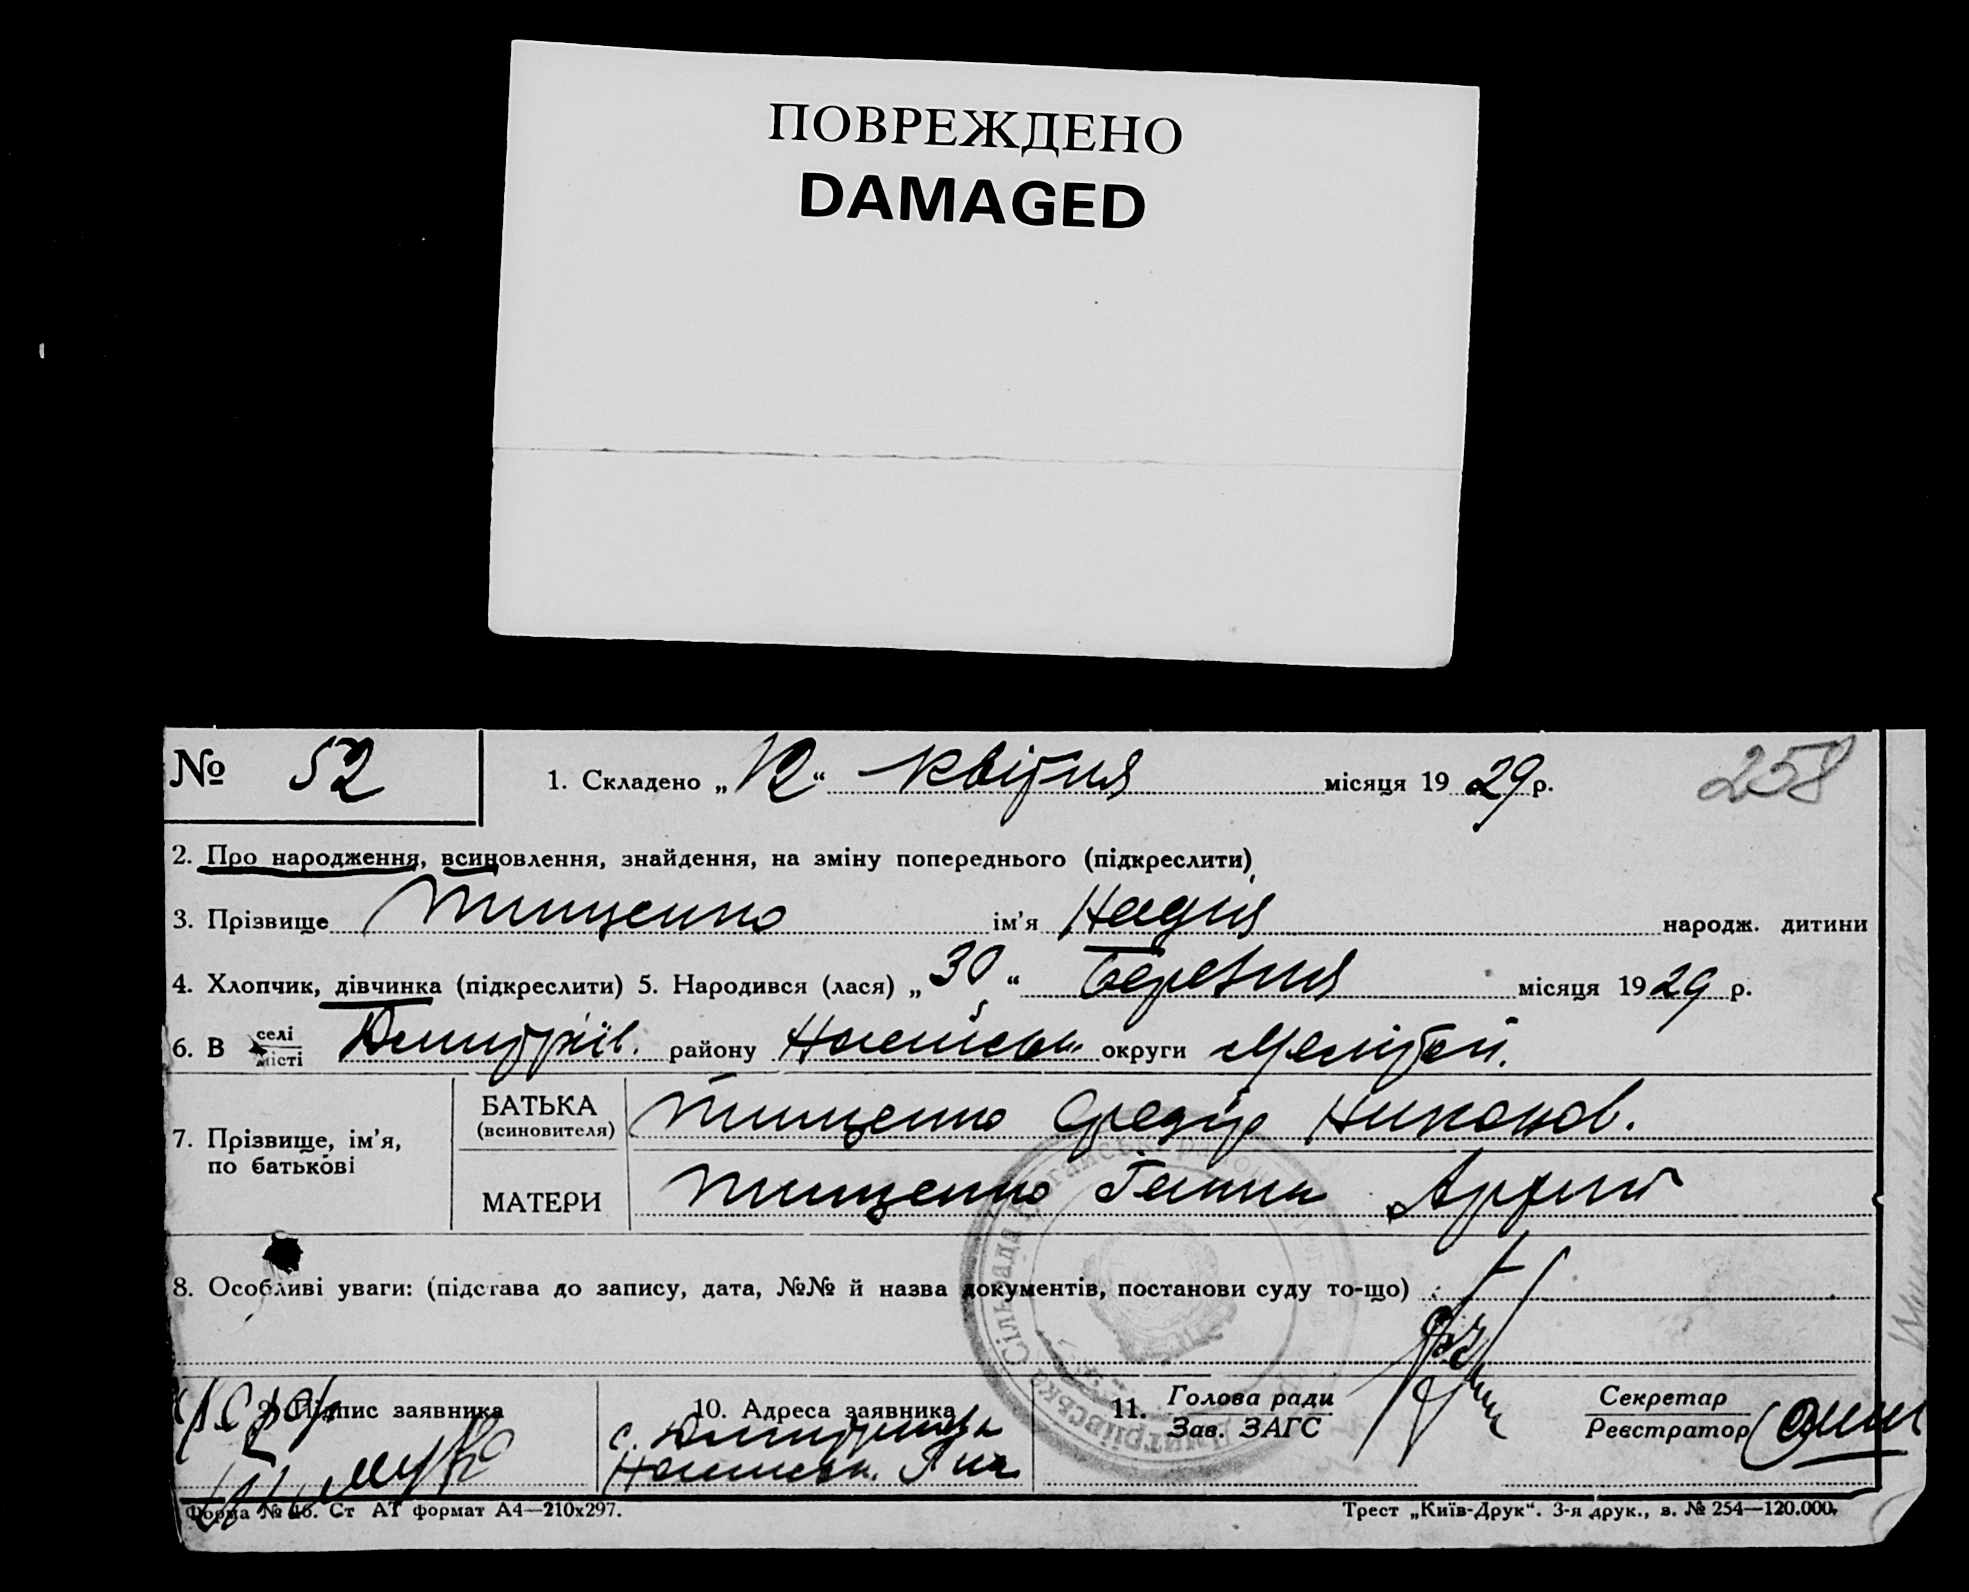 ПОВРЕЖДЕНО
DAMAGED
№ 52
1. Складено „12“ квітня місяця 1929 р.
258
2. Про народження, всиновлення, знайдення, на зміну попереднього (підкреслити)
3. Прізвище Тищенко ім’я Надія народж. дитини
4. Хлопчик, дівчинка (підкреслити) 5. Народився (лася) „30“ березня місяця 1929 р.
6. В селі місті Дмитрів. району округи Мелітоп.
7. Прізвище, ім’я, по батькові
БАТЬКА (всиновителя) Тищенко Федір Никонов.
МАТЕРИ Тищенко Ганна
8. Особливі уваги: (підстава до запису, дата, №№ й назва документів, постанови суду то-що)
9. Підпис заявника
10. Адреса заявника
с. Дмитрівка
11. Голова ради
Зав. ЗАГС
Секретар
Реєстратор
Форма № 1б. Ст АТ формат А4—210х297.
Трест „Київ-Друк“. 3-я друк., з. № 254—120.000.